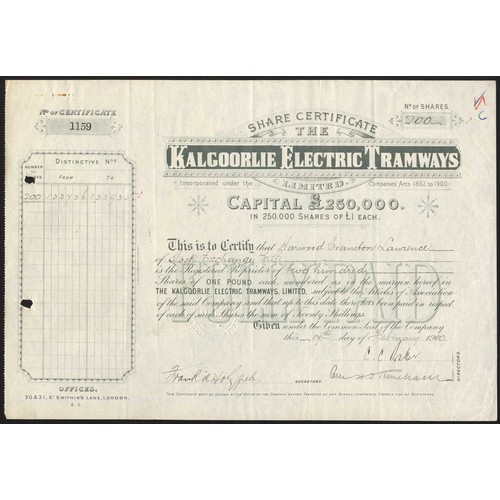 Nº OF CERTIFICATE
1159
Nº OF SHARES.
200
SHARE CERTIFICATE
THE
KALGOORLIE ELECTRIC TRAMWAYS
LIMITED.
Incorporated under the Companies Acts 1862 to 1900
CAPITAL £250,000.
IN 250,000 SHARES OF £1 EACH.
DISTINCTIVE Nºs
NUMBER OF SHARES
From
To
200
This is to Certify that Harwood Cranston Lawrence
of Stock Exchange
is the Registered Proprietor of two hundred
Shares of ONE POUND each numbered as in the margin hereof in
THE KALGOORLIE ELECTRIC TRAMWAYS, LIMITED, subject to the Articles of Association
of the said Company and that up to this date there has been paid in respect
of each of such Shares the sum of Twenty Shillings.
Given under the Common Seal of the Company
this day of February 190
DIRECTORS
SECRETARY
OFFICES.
30 & 31, St SWITHIN'S LANE, LONDON,
E.C.
THIS CERTIFICATE MUST BE LODGED AT THE OFFICE OF THE COMPANY BEFORE TRANSFER OF ANY SHARES COMPRISED THEREIN CAN BE REGISTERED